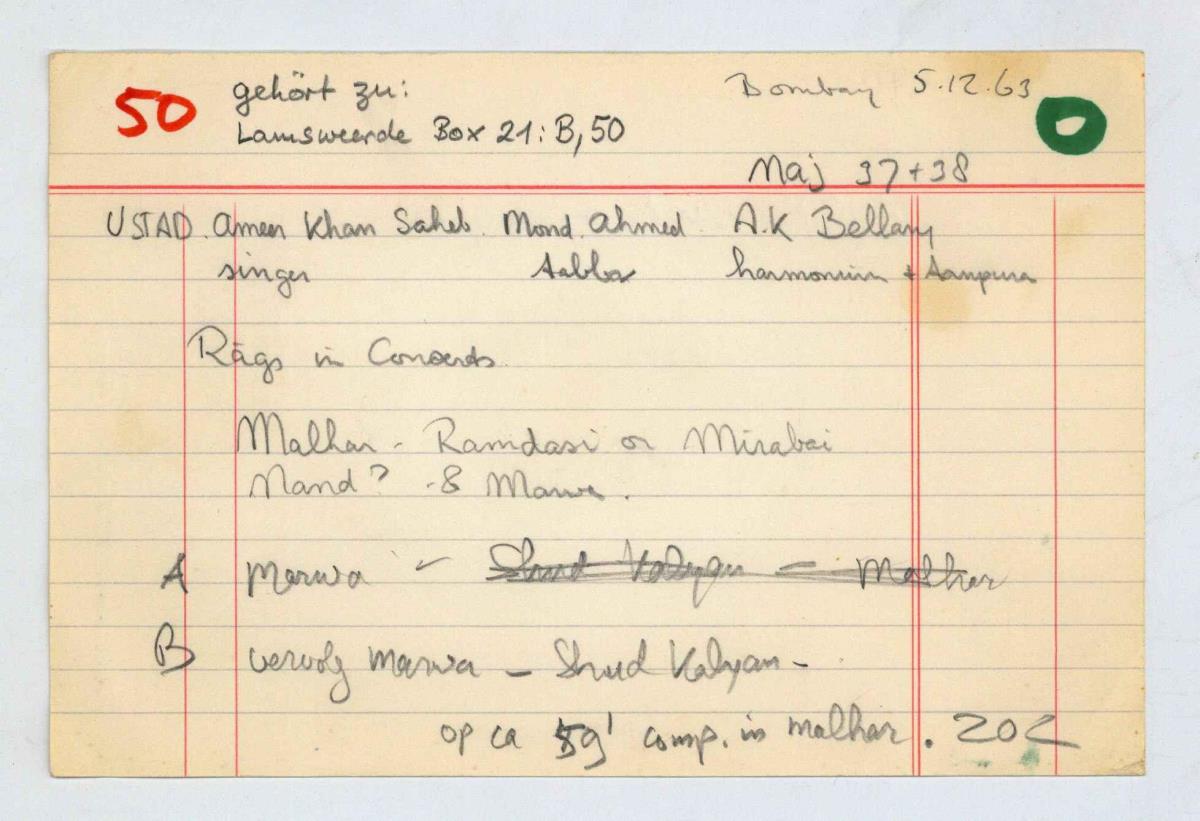 50 gehört zu: Bombay 5.12.63
Lamsweerde Box 21: B, 50
Maj 37+38
USTAD. Ameer Khan Saheb. Mond. Ahmed A.K Bellary
singer tabla harmonium + tanpura
Rāgs in Concerts
Malhar - Ramdasi or Mirabai
Mand? - & Marwa.
A Marwa - Shud Kalyan - Malhar
B vervolg Marwa - Shud Kalyan -
op ca 59' comp. in malhar.